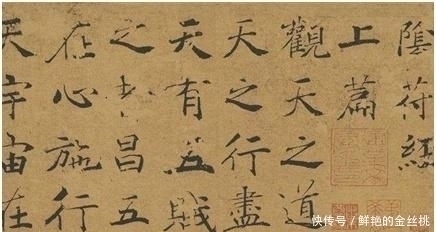 陰符經
上篇
觀天之道
天之行盡
天有五賊
之者昌五
在心施行
天宇宙在
快传号/鲜艳的金丝桃